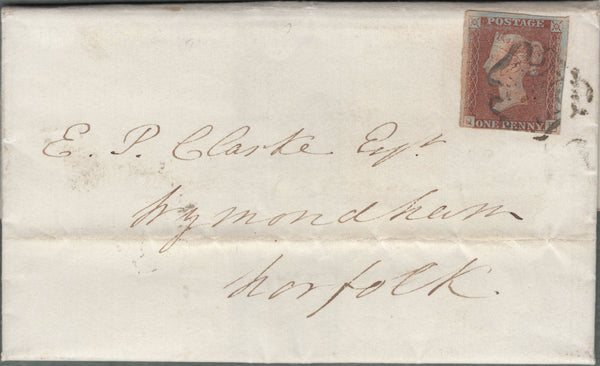 POSTAGE
ONE PENNY
E. P. Clarke Esqr.
Wymondham
Norfolk.